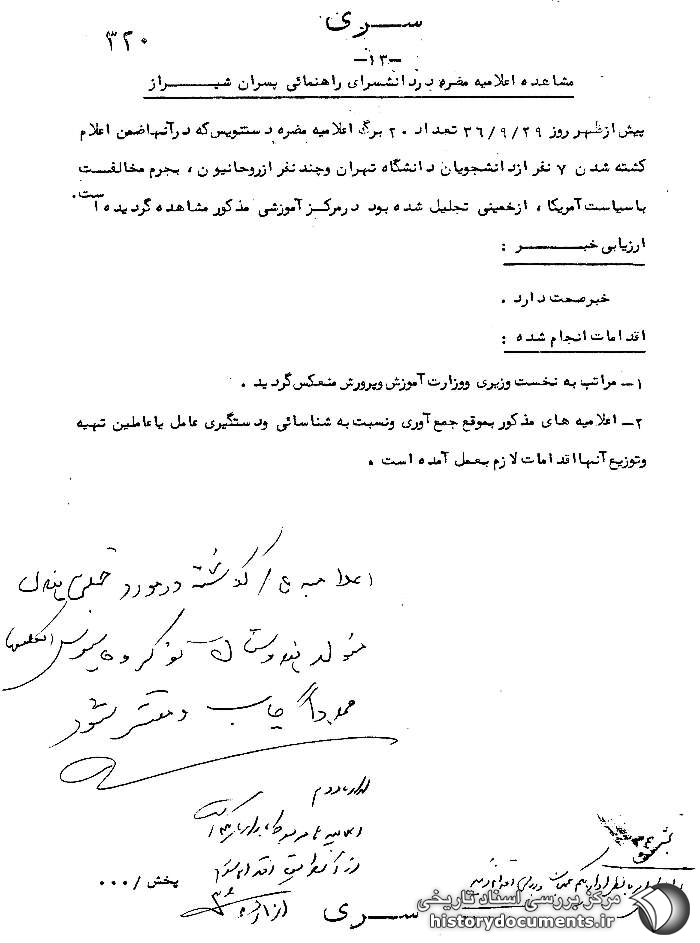 سری
۳۲۰
-۱۳-
مشاهده اعلامیه مضره در دانشسرای راهنمائی پسران شیراز
پیش از ظهر روز ۳۶/۹/۲۹ تعداد ۲۰ برگ اعلامیه مضره دستنویس که در آنها ضمن اعلام
کشته شدن ۷ نفر از دانشجویان دانشگاه تهران و چند نفر از روحانیون ، بجرم مخالفست
با سیاست آمریکا ، از خمینی تجلیل شده بود در مرکز آموزشی مذکور مشاهده گردیده است.
ارزیابی خبر :
خبر صحت دارد .
اقدامات انجام شده :
۱- مراتب به نخست وزیری و وزارت آموزش و پرورش منعکس گردید .
۲- اعلامیه های مذکور بموقع جمع آوری و نسبت به شناسائی و دستگیری عامل یا عاملین تهیه
و توزیع آنها اقدامات لازم بعمل آمده است .
گذشته در مورد خمینی
متولد هندوستان نوکر و جاسوس انگلیسها
مجدداً چاپ و منتشر شود
پخش / ...
سری
مرکز بررسی اسناد تاریخی
historydocuments.ir